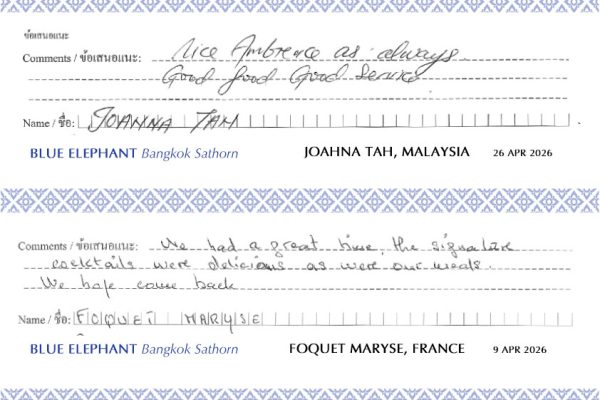 ข้อเสนอแนะ
Comments / ข้อเสนอแนะ: Nice Ambience as always.
Good food Good Service
Name / ชื่อ: JOAHNA TAH
BLUE ELEPHANT Bangkok Sathorn JOAHNA TAH, MALAYSIA 26 APR 2026
Comments / ข้อเสนอแนะ: We had a great time, the signature
cocktails were delicious as were our meals.
We hope come back
Name / ชื่อ: FOQUET MARYSE
BLUE ELEPHANT Bangkok Sathorn FOQUET MARYSE, FRANCE 9 APR 2026